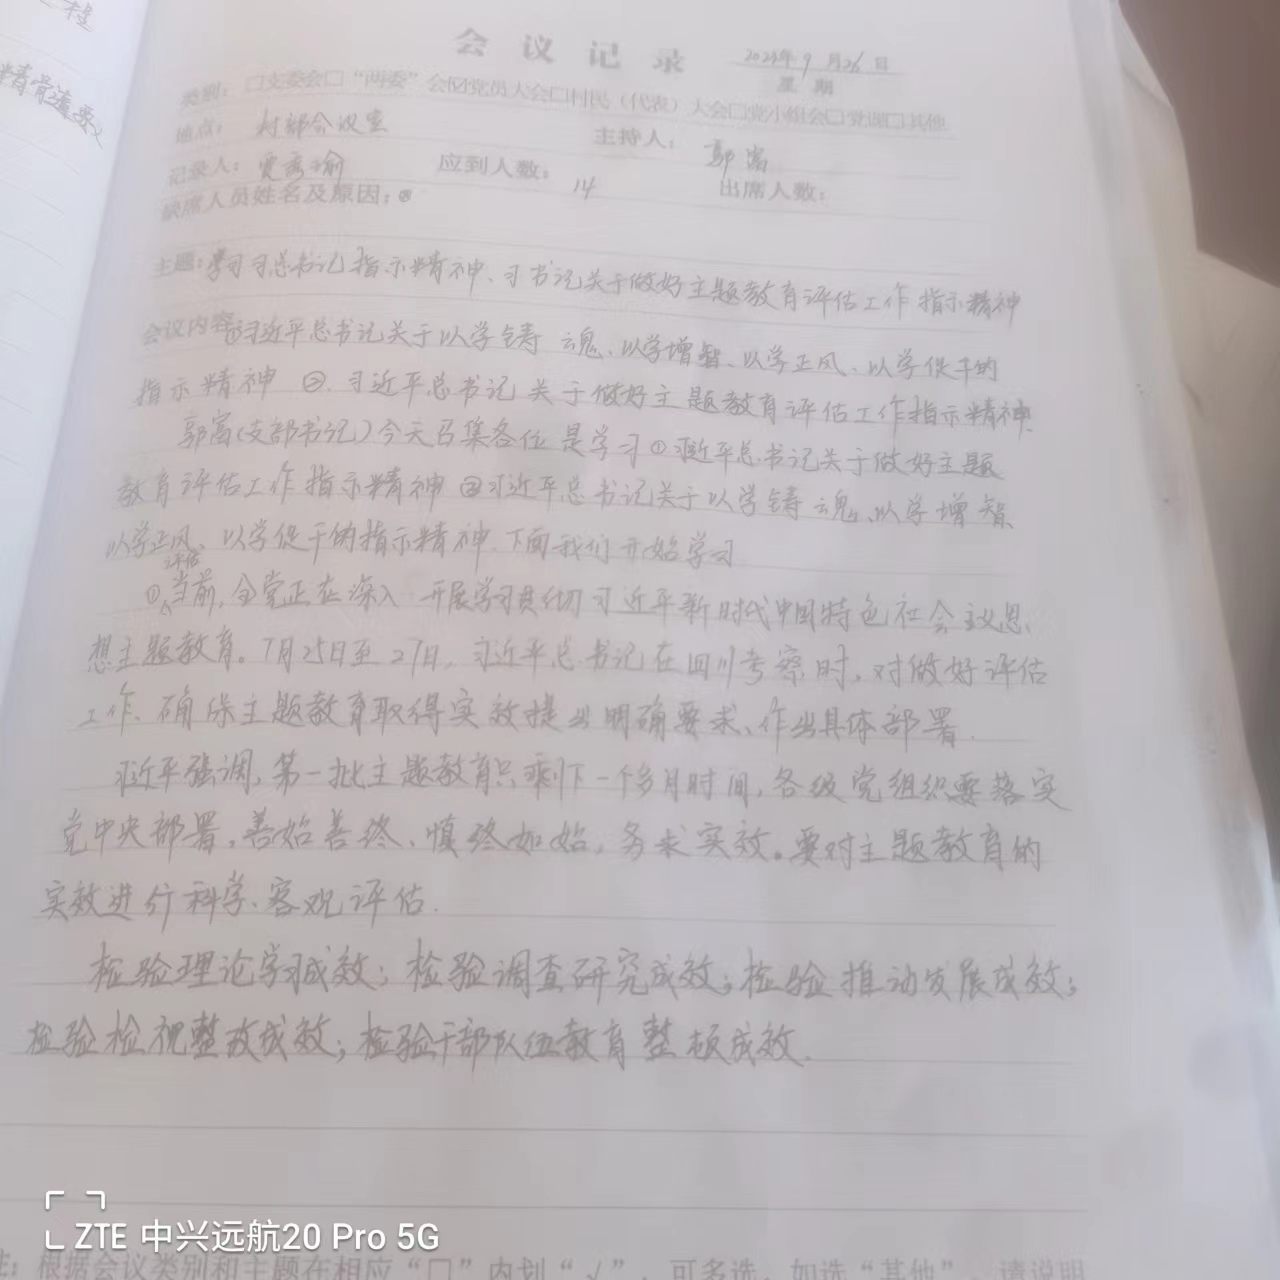 桂
精骨清要义
会 议 记 录
2023年9月26日
星 期
类别：□支委会□“两委”会☑党员大会□村民（代表）大会□党小组会□党课□其他
地点：村部会议室 主持人：郭富
记录人： 应到人数：14 出席人数：
缺席人员姓名及原因：
主题：学习习总书记指示精神、习书记关于做好主题教育评估工作指示精神
会议内容：①习近平总书记关于以学铸魂、以学增智、以学正风、以学促干的
指示精神 ②.习近平总书记关于做好主题教育评估工作指示精神.
郭富(支部书记)今天召集各位是学习①习近平总书记关于做好主题
教育评估工作指示精神②习近平总书记关于以学铸魂、以学增智
以学正风、以学促干的指示精神.下面我们开始学习
评估
①当前,全党正在深入开展学习贯彻习近平新时代中国特色社会主义思
想主题教育。7月25日至27日,习近平总书记在四川考察时,对做好评估
工作、确保主题教育取得实效提出明确要求、作出具体部署.
习近平强调,第一批主题教育只剩下一个多月时间,各级党组织要落实
党中央部署,善始善终、慎终如始,务求实效。要对主题教育的
实效进行科学、客观评估.
检验理论学习成效;检验调查研究成效;检验推动发展成效;
检验检视整改成效;检验干部队伍教育整顿成效.
ZTE 中兴远航20 Pro 5G
注：根据会议类别和主题在相应“□”内划“√”，可多选，如选“其他”，请说明